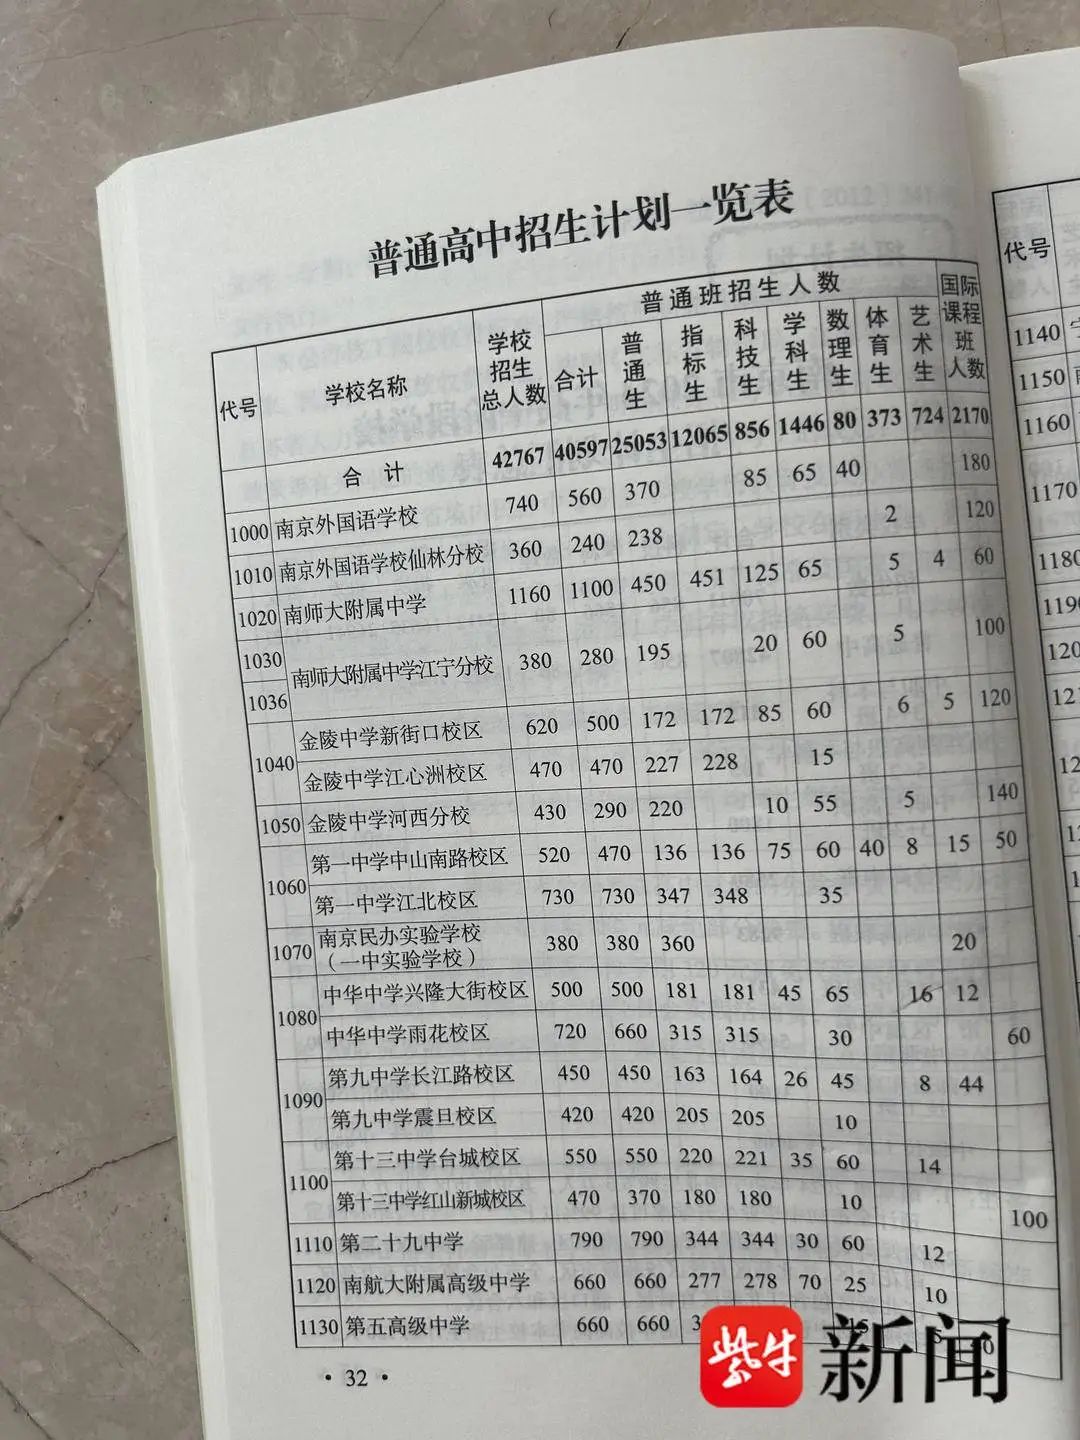 普通高中招生计划一览表
代号 学校名称 学校招生总人数 普通班招生人数 国际课程班人数
合计 普通生 指标生 科技生 学科生 数理生 体育生 艺术生
合计 42767 40597 25053 12065 856 1446 80 373 724 2170
1000 南京外国语学校 740 560 370 85 65 40 180
1010 南京外国语学校仙林分校 360 240 238 2 120
1020 南师大附属中学 1160 1100 450 451 125 65 5 4 60
1030 1036 南师大附属中学江宁分校 380 280 195 20 60 5 100
1040 金陵中学新街口校区 620 500 172 172 85 60 6 5 120
金陵中学江心洲校区 470 470 227 228 15
1050 金陵中学河西分校 430 290 220 10 55 5 140
1060 第一中学中山南路校区 520 470 136 136 75 60 40 8 15 50
第一中学江北校区 730 730 347 348 35
1070 南京民办实验学校 380 380 360 20
（一中实验学校）
1080 中华中学兴隆大街校区 500 500 181 181 45 65 16 12
中华中学雨花校区 720 660 315 315 30 60
1090 第九中学长江路校区 450 450 163 164 26 45 8 44
第九中学震旦校区 420 420 205 205 10
1100 第十三中学台城校区 550 550 220 221 35 60 14
第十三中学红山新城校区 470 370 180 180 10 100
1110 第二十九中学 790 790 344 344 30 60 12
1120 南航大附属高级中学 660 660 277 278 70 25 10
1130 第五高级中学 660 660
· 32 ·
代号
1140
1150
1160
1170
1180
紫牛 新闻